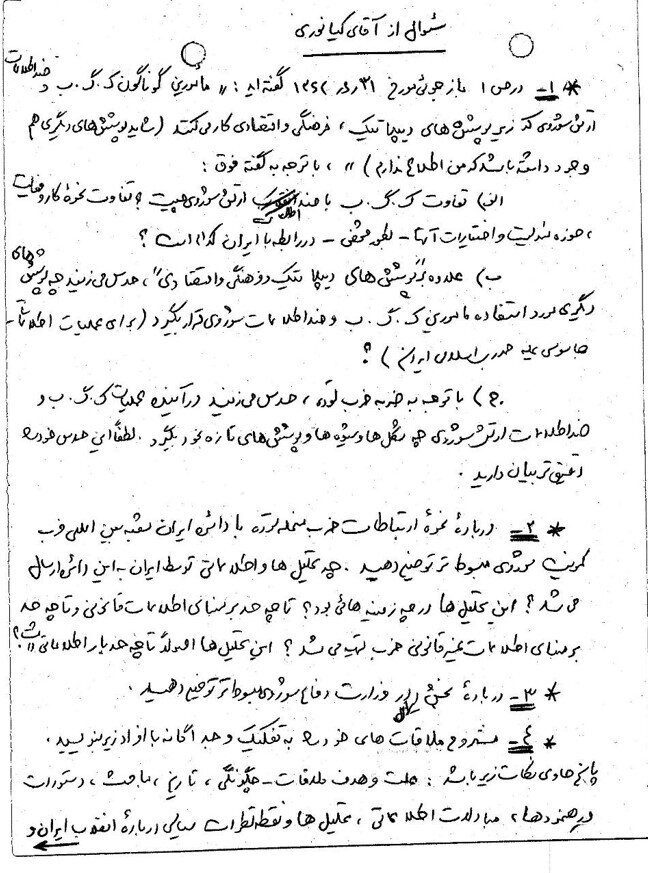 سئوال از آقای کیانوری
* ۱- درص ۱ بازجوئی مورخ ۳۱ر۴ر۱۳۶۲ گفته اید: " مأمورین گوناگون ک.گ.ب و ضداطلاعات
ارتش شوروی که زیر پوشش های دیپلماتیک ، فرهنگی و اقتصادی کار می کنند (شاید پوشش های دیگری هم
وجود داشته باشد که من اطلاع ندارم) " ، با توجه به گفته فوق :
الف) تفاوت ک.گ.ب با ضد اطلاعات ارتش شوروی چیست ؟ تفاوت نحوهٔ کار و فعالیت
، حوزه مسئولیت و اختیارات آنها - بطور مشخص - در رابطه با ایران کدام است ؟
ب) علاوه بر "پوشش های دیپلماتیک و فرهنگی و اقتصادی" ، حدس می زنید چه پوشش های
دیگری مورد استفاده مأمورین ک.گ.ب و ضداطلاعات شوروی قرار بگیرد (برای عملیات اطلاعاتی -
جاسوسی علیه جمهوری اسلامی ایران) ؟
ج) با توجه به ضربه حزب توده ، حدس می زنید در آینده عملیات ک.گ.ب و
ضداطلاعات ارتش شوروی چه شکل ها و شیوه ها و پوشش های تازه بخود بگیرد . لطفاً این حدس خود را
دقیق تر بیان دارید .
* ۲- دربارهٔ نحوهٔ ارتباطات حزب منحله توده با دائره ایران شعبه بین المللی حزب
کمونیست شوروی مبسوط تر توضیح دهید . چه تحلیل ها و اطلاعاتی توسط ایران به این دائره ارسال
می شد ؟ این تحلیل ها در چه زمینه هائی بود ؟ تا چه حد بر مبنای اطلاعات قانونی و تا چه حد
بر مبنای اطلاعات غیر قانونی حزب تهیه می شد ؟ این تحلیل ها اصولاً تا چه حد بار اطلاعاتی داشت ؟
* ۳- دربارهٔ بخش در وزارت دفاع شوروی مبسوط تر توضیح دهید .
* ۴- مشروح ملاقات های خود را به تفکیک و جداگانه با افراد زیر بنویسید .
پاسخ حاوی نکات زیر باشد : علت و هدف ملاقات - چگونگی ، تاریخ ، مباحث ، دستورات
و رهنمودها ، مبادلات اطلاعاتی ، تحلیل ها و نقطه نظرات سیاسی دربارهٔ انقلاب ایران و